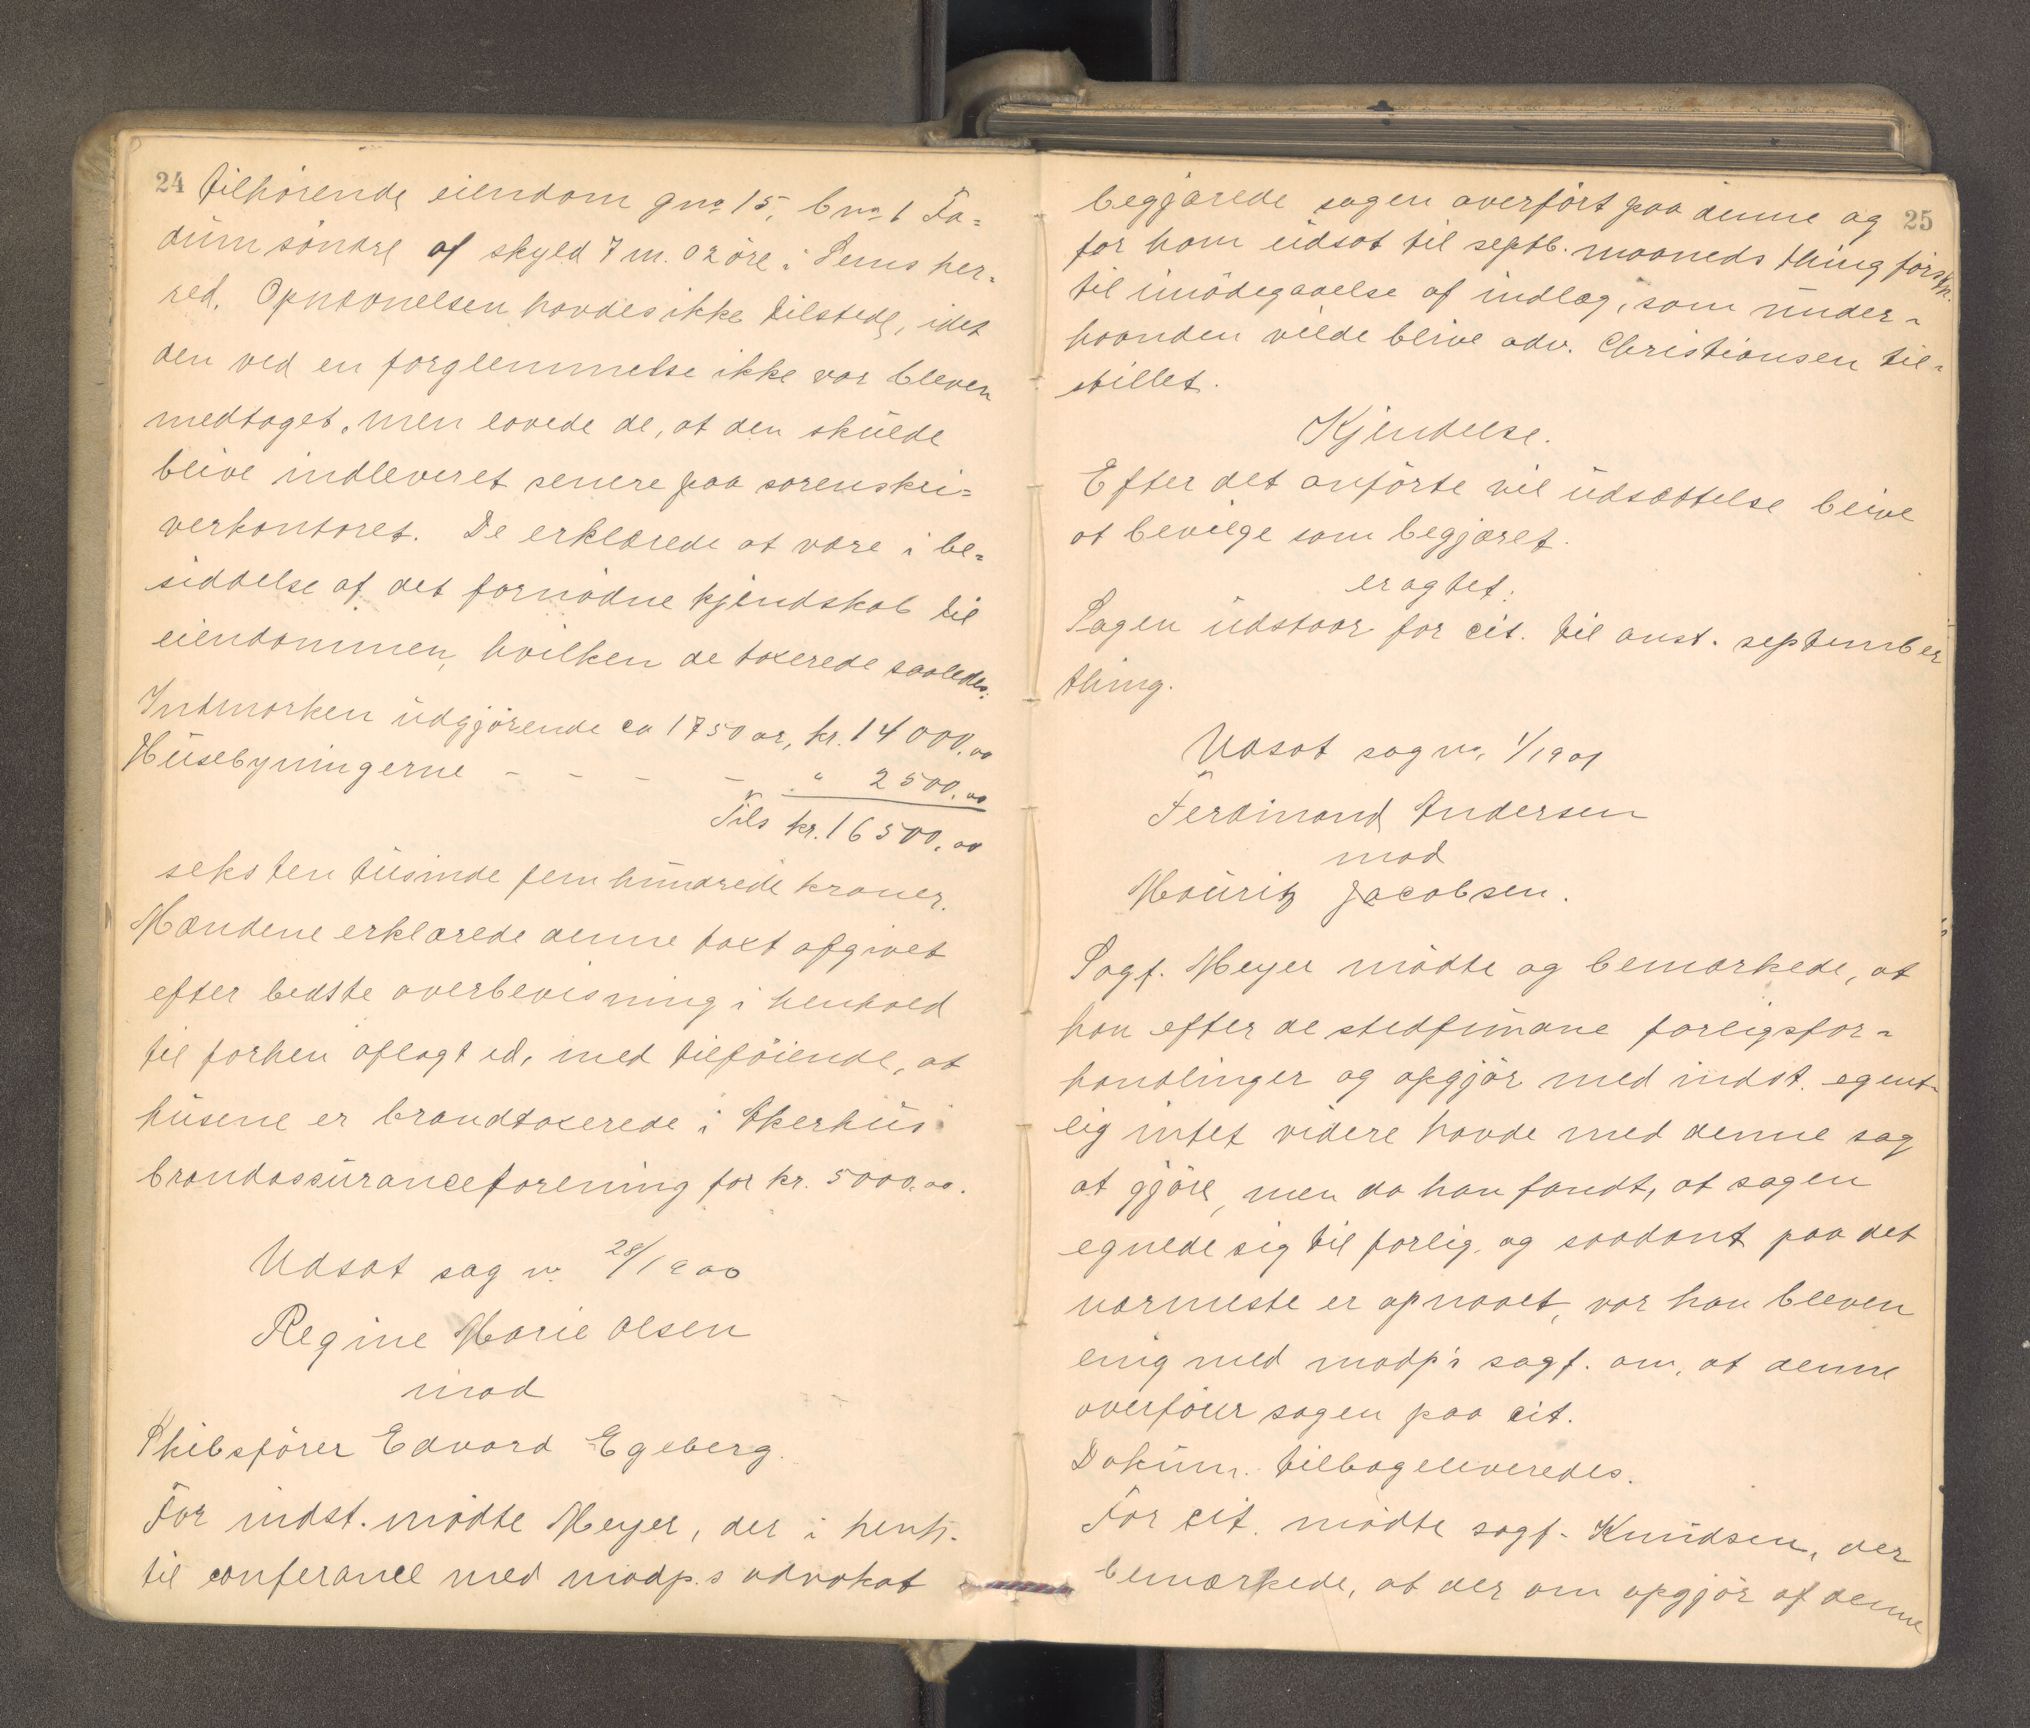 24 tilhörende eiendom gno 15, bno 1 Fa-
dum söndre af skyld 7 m. 02 öre i Sems her-
red. Opnævnelsen havdes ikke tilstede, idet
den ved en forglemmelse ikke var bleven
medtaget, men lovede de, at den skulde
blive indleveret senere paa sorenskri-
verkontoret. De erklærede at være i be-
siddelse af det fornødne kjendskab til
eiendommen, hvilken de taxerede saaledes:
Indmarken udgjörende ca 1750 ar, kr. 14000.00
Husebyningerne - - - - " 2500.00
Tils kr. 16500.00
seksten tusinde fem hundrede kroner.
Mændene erklærede denne taxt afgivet
efter bedste overbevisning i henhold
til forhen aflagt ed, med tilföiende, at
husene er brandtaxerede i Akerhus
brandassuranceforening for kr. 5000.00.
Udsat sag no 28/1900
Regine Marie Olsen
mod
Skibsförer Edvard Egeberg.
For indst. mödte Meyer, der i henh.
til conferance med modp.s advokat
25
begjærede sagen overfört paa denne og
for ham udsat til septb. maaneds thing förstk.
til imödegaaelse af indlæg, som under-
haanden vilde blive adv. Christiansen til-
stillet.
Kjendelse.
Efter det anförte vil udsættelse blive
at bevilge som begjæret.
eragtet:
Sagen udstaar for cit. til anst. september
thing.
Udsat sag no. 1/1901
Ferdinand Andersen
mod
Mouritz Jacobsen.
Sagf. Meyer mödte og bemærkede, at
han efter de stedfundne forligsfor-
handlinger og opgjör med indst. egent-
lig intet videre havde med denne sag
at gjöre, men da han fandt, at sagen
egnede sig til forlig, og saadant paa det
nærmeste er opnaaet, var han bleven
enig med modp's sagf. om, at denne
overförer sagen paa cit.
Dokum. tilbageleveredes.
For cit. mödte sagf. Knudsen, der
bemærkede, at der om opgjör af denne